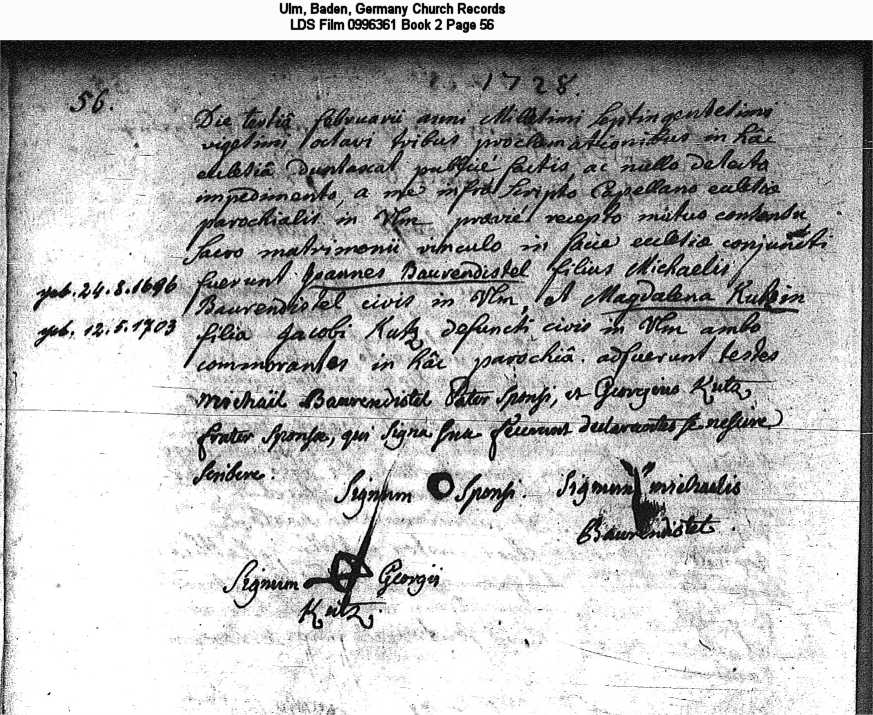 Ulm, Baden, Germany Church Records
LDS Film 0996361 Book 2 Page 56
1728.
56.
Die tertiâ februarii anni Millesimi septingentesimi
vigesimi octavi tribus proclamationibus in hâc
ecclesiâ duntaxat publicé factis, ac nullo detecto
impedimento, a me infra scripto Capellano ecclesiæ
parochialis in Vlm prævié recepto mutuo consensu
sacro matrimonii vinculo in facie ecclesiæ conjuncti
geb. 24.8.1696
fuerunt Joannes Baurendistel filius Michaelis
Baurendistel civis in Vlm, et Magdalena Kutzin
geb. 12.5.1703
filia Jacobi Kutz defuncti civis in Vlm ambo
commorantes in hâc parochiâ. adfuerunt testes
Michaël Baurendistel Pater Sponsi, et Georgius Kutz
frater Sponsæ, qui Signa sua fecerunt declarantes se nescire
scribere.
Signum Sponsi.
Signum Michaelis
Baurendistel.
Signum Georgii
Kutz.